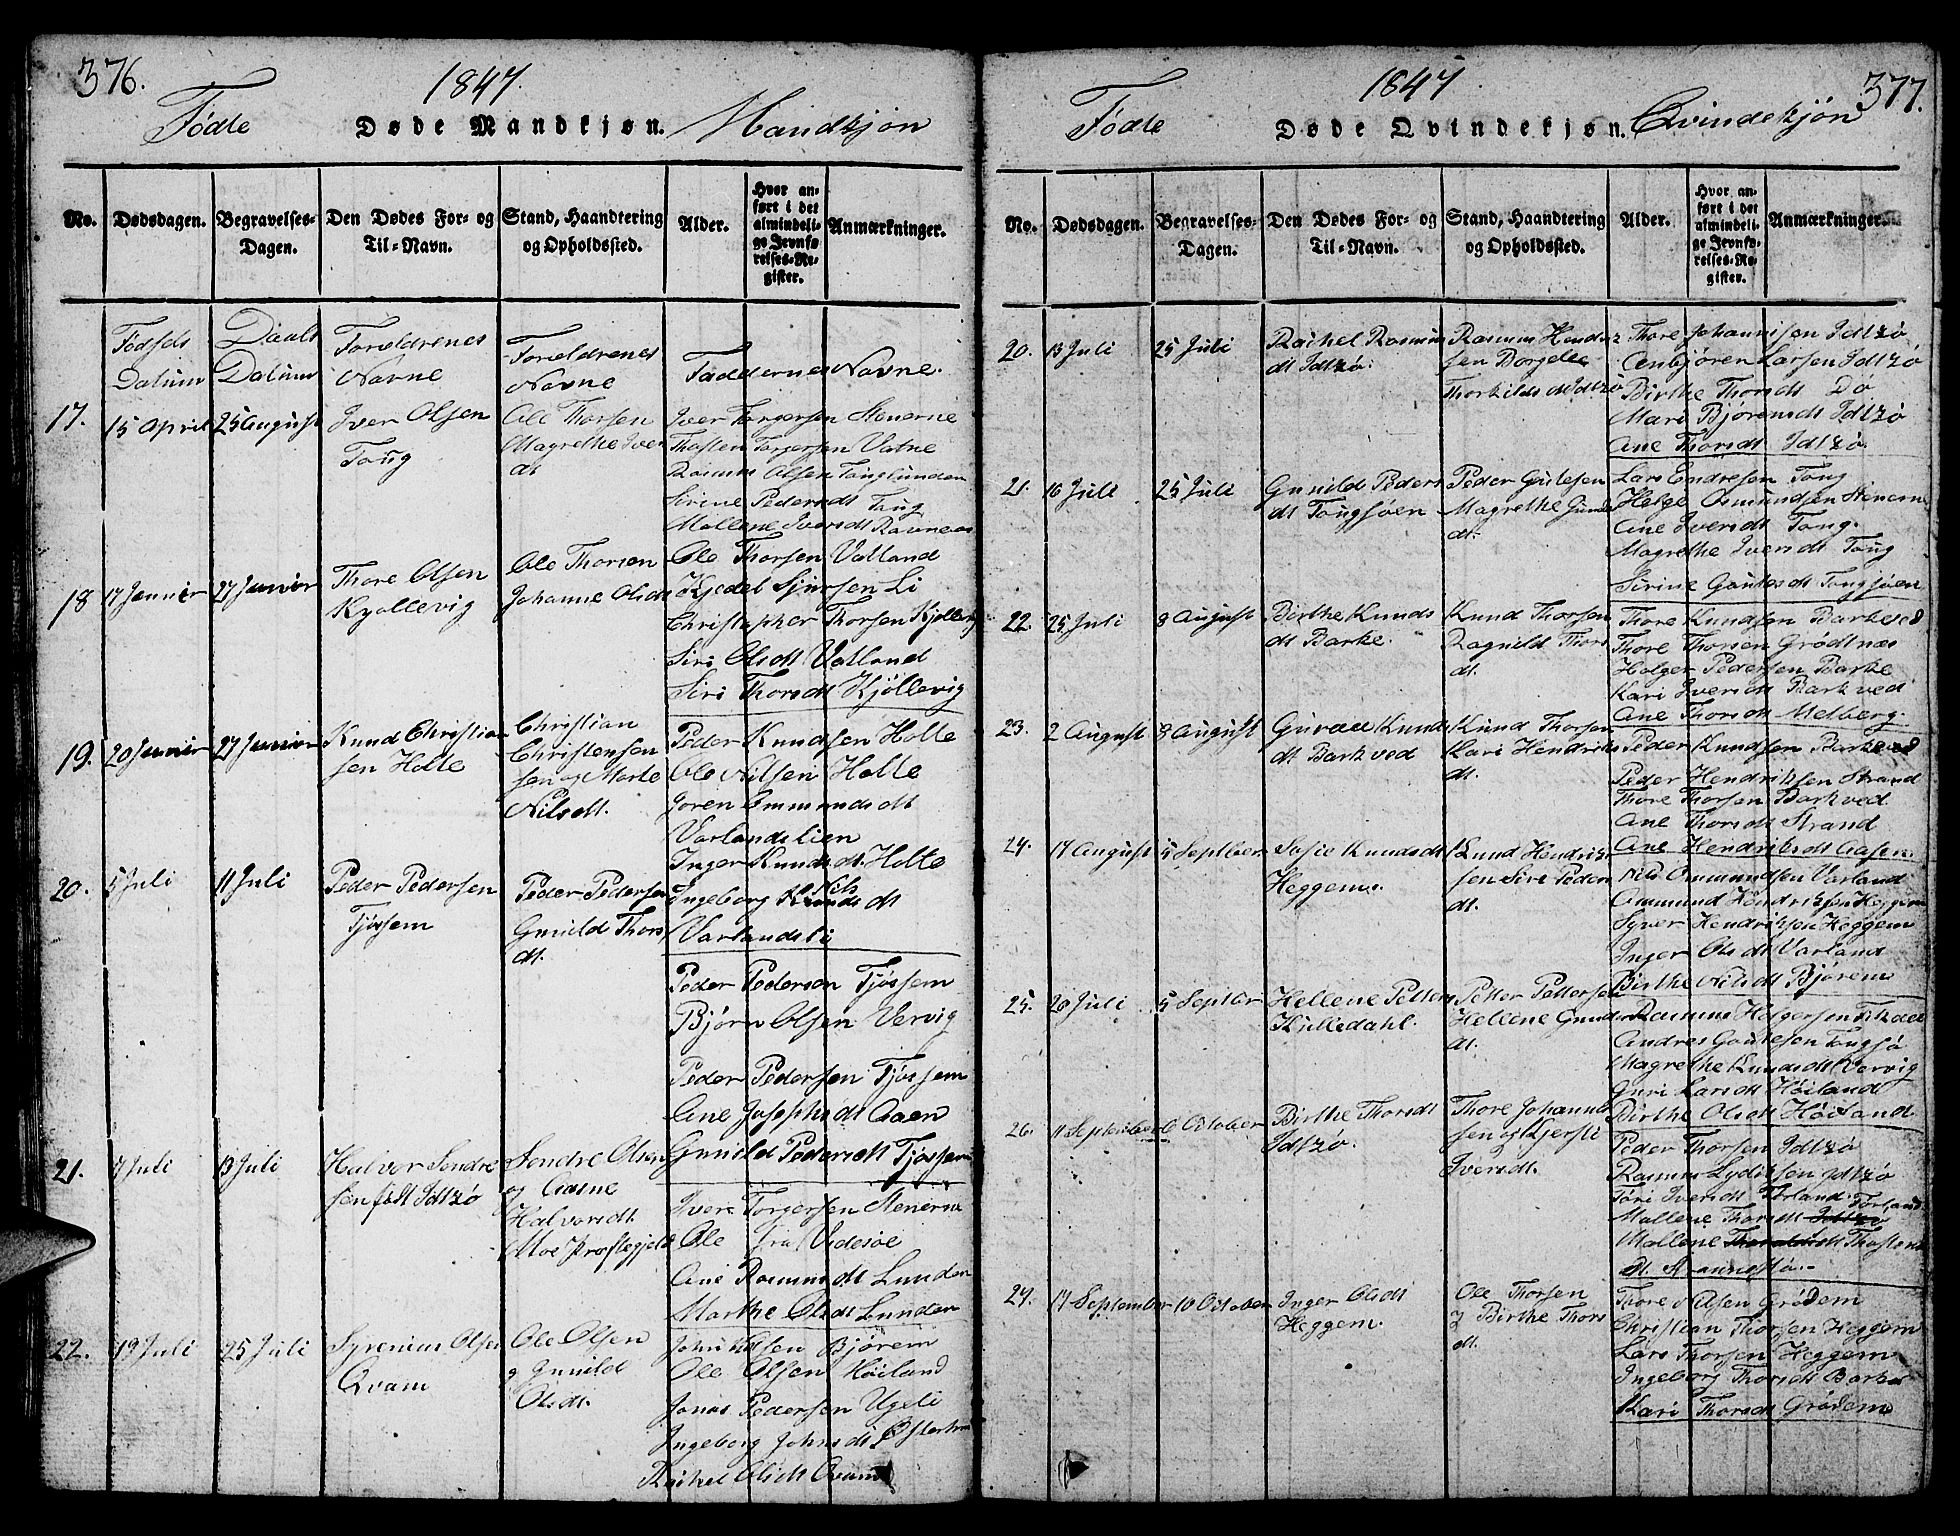 376.
1847.
Fødte Døde Mandkjøn. Mandkjøn
No. Dødsdagen. Begravelses-Dagen. Den Dødes For- og Til-Navn. Stand, Haandtering og Opholdssted. Alder. Hvor anført i det almindelige Jevnførelses-Register. Anmærkninger.
Fødsels Datum
Daabs Datum
Forældrenes Navne
Forældrenes Navne
Faddernes Navne.
17. 15 April 25 August
Iver Olsen
Toug
Ole Thorsen
Magrethe Ivers
dt
Iver Torgersen Stenerne
Thosten Torgersen Vatne
Rasmus Olsen Touglunden
Sirine Pedersdt Toug
Mallene Iversdt Ravneaas
18 17 Januar 27 Januar
Thore Olsen
Kjøllevig
Ole Thorsen
Johanne Olsdt
Ole Thorsen Vatland
Kjedel Sjursen Li
Christopher Thorsen Kjøllevig
Siri Olsdt Vatland
Siri Thorsdt Kjøllevig
19. 20 Januar 27 Januar
Knud Christian
sen Holte
Christian
Christensen
sen og Marte
Nilsdt.
Peder Knudsen Holte
Ole Nilsen Holte
Joren Ommundsdt
Varlandslien
Inger Knudsdt. Holte
Ingeborg Nilsdt
Varlandsli
20. 5 Juli 11 Juli
Peder Pedersen
Tjøssem
Peder Pedersen
Gunild Thors
dt.
Peder Pederson Tjøssem
Bjørn Olsen Vervig
Peder Pedersen Tjøssem
Ane Josephsdt Aaen
Gunild Pedersdt Tjøssem
21. 7 Juli 13 Juli
Halvor Sondre
sen født Idtzø
Sondre Olsen
og Aasne
Halvorsdt.
Moe Præstegjeld
Ivere Torgersen Stenerne
Ole fra Videsøe
Ane Rasmusdt Lunden
Marthe Olsdt Lunden
22. 19 Juli 25 Juli
Syrenius Olsen
Qvam
Ole Olsen
og Gunild
Olsdt.
John Olsen Bjørem
Ole Olsen Høiland
Jonas Pedersen Ugeli
Ingeborg Johnsdt
Rachel Olsdt Qvam
377.
1847
Fødte Døde Qvindekjøn. Qvindekjøn
No. Dødsdagen. Begravelses-Dagen. Den Dødes For- og Til-Navn. Stand, Haandtering og Opholdssted. Alder. Hvor anført i det almindelige Jevnførelses-Register. Anmærkninger.
20. 13 Juli 25 Juli
Rachel Rasmus
dt Idtzø.
Rasmus Hendrik
sen Borgelle
Thorkildsdt Idtzø
Thore Johannisen Idtzø
Aenbjøren Larsen Idtzø
Birthe Thorsdt Dø
Mari Bjørensdt Idtzø
Ane Thorsdt Idtzø.
21. 16 Juli 25 Juli
Gunild Peders
dt Tougsøen
Peder Gautesen
Magrethe Gunde
dt.
Lars Endresen Toug
Helge Osmundsen Stenerne
Ane Iversdt Toug.
Magrethe Iversdt Toug
Sirine Gautesdt Tougsøen
22. 25 Juli 8 August
Birthe Knuds
dt Barke.
Knud Thorsen
Ragnild Thors
dt.
Thore Knudsen Barkeved
Thore Thorsen Grødtnæs
Holger Pedersen Barke
Kari Iversdt Barkved
Ane Thorsdt Melberg.
23. 2 August 8 August
Guraae Knuds
dt Barkved
Knud Thorsen
Kari Hendriks
dt.
Peder Knudsen Barkeved
Peder Hendriksen Strand
Thore Thorsen Barkved
Ane Thorsdt Strand
Ane Hendriksdt Aasen.
24. 17 August 5 Septber
Sofie Knudsdt
Heggem.
Knud Hendrik
sen Siri Peder
dt.
Nils Ommundsen Varland
Ommund Hendriksen Heggem
Syver Hendriksen Heggem
Inger Olsdt Varland
Birthe Nilsdt Bjørem
25. 20 Juli 5 Septber
Hellene Petters
Kulledahl.
Petter Pettersen
Hellene Gunders
dt.
Rasmus Holgersen
Andres Gautesen Tougsø
Magrethe Knudsdt Vervig
Guri Larsdt Høiland
Birthe Olsdt Høiland
26. 11 September October
Birthe Thorsdt
Idtzø.
Thore Johanne
sen og Kjersti
Iversdt.
Peder Thorsen Idtzø
Rasmus Lydiksen Idtzø
Tori Iversdt Torland.
Mallene Thorsdt Idtzø Torland
Mallene Thoraldsdt Thostens
dt. Strannestø.
27. 17 September 10 October
Inger Olsdt
Heggem.
Ole Thorsen
og Birthe Thors
dt.
Thore Olsen Grødem
Christian Thorsen Heggem
Lars Thorsen Heggem
Ingeborg Thorsdt Barke
Kari Thorsdt Grødem